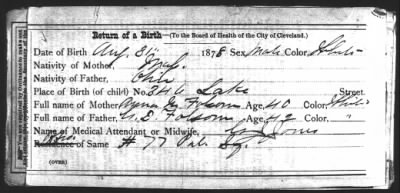 Return of a Birth—(To the Board of Health of the City of Cleveland.)
Date of Birth Aug. 31 1878 Sex, Male Color, White
Nativity of Mother, Mass.
Nativity of Father, Ohio
Place of Birth (of child) No. 346 Lake Street.
Full name of Mother Folsom Age, 40 Color, White
Full name of Father, N. D. Folsom Age, 42 Color, "
Name of Medical Attendant or Midwife, Jones
Residence of Same # 77 Pub. Sq.
(OVER)